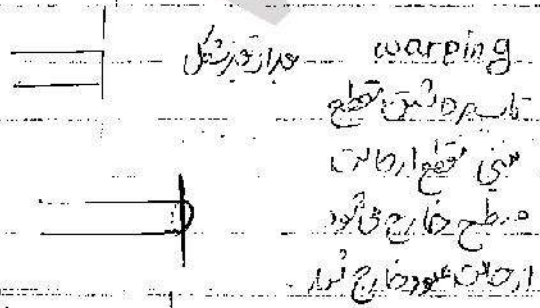 warping بعد از تغییر شکل
تاب برداشتن مقطع
یعنی مقطع از حالت
مسطح خارج می شود
از حالت عمود خارج شود.